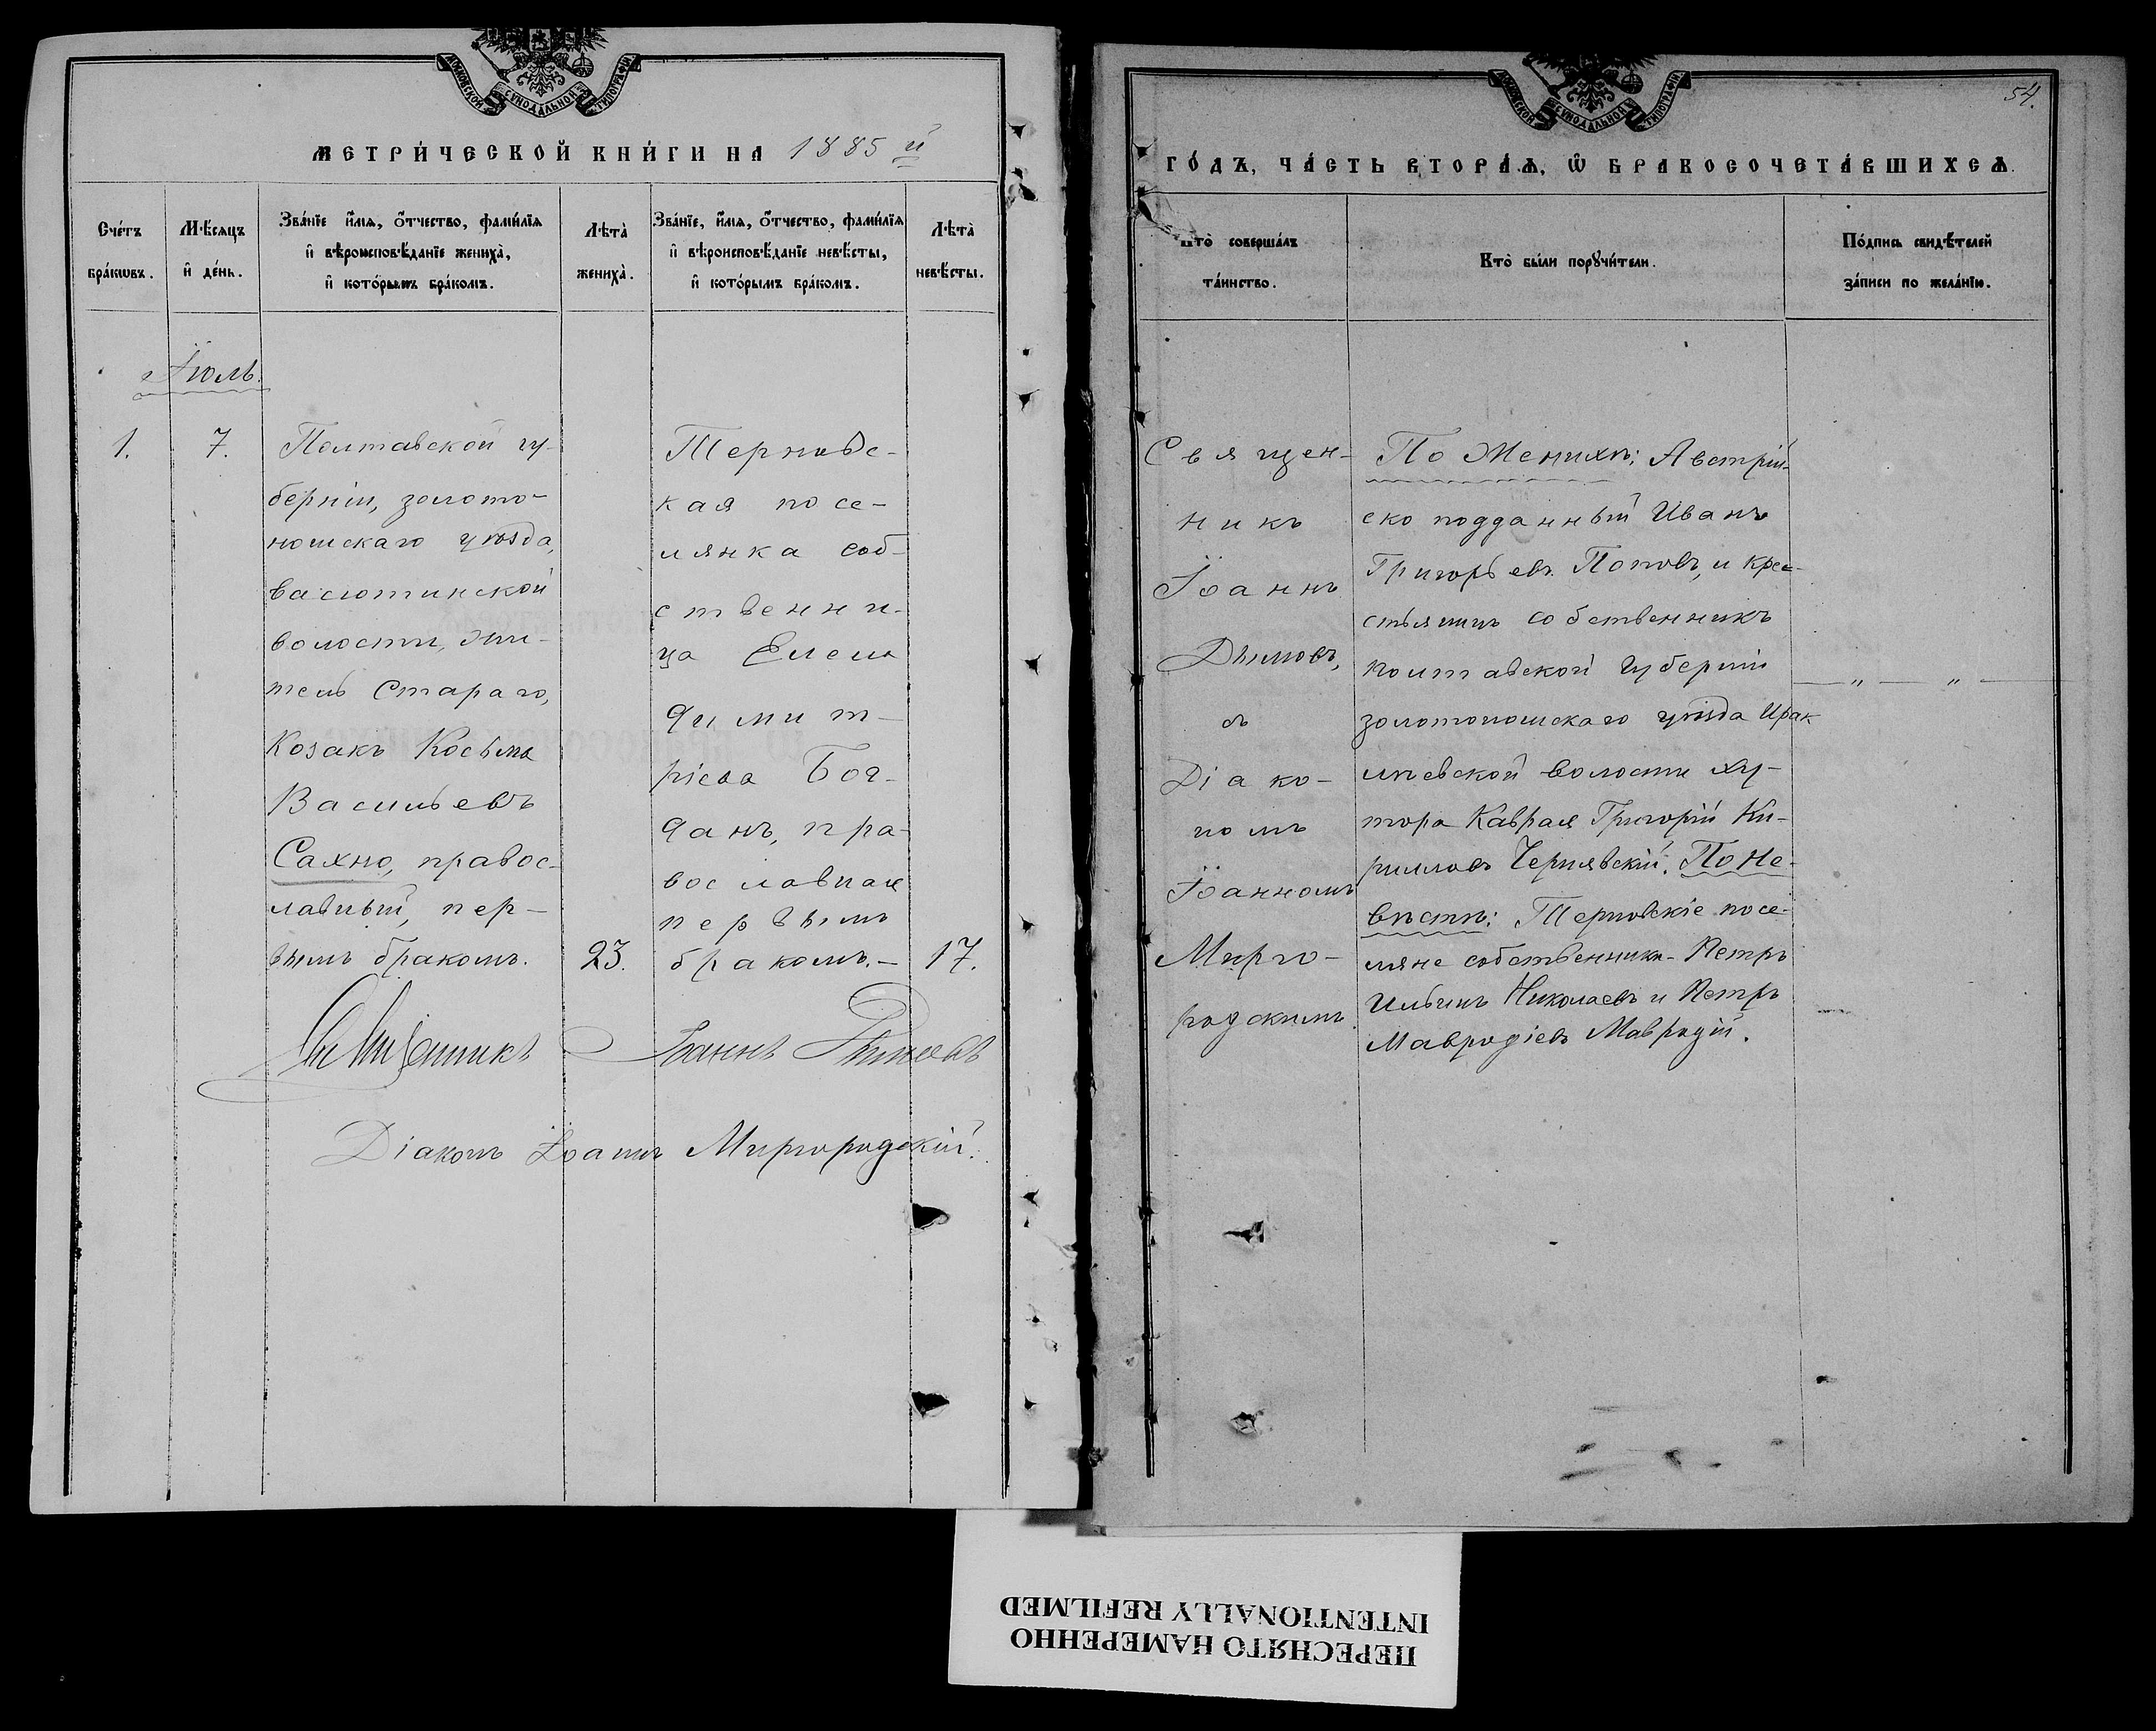 МОСКОВСКОЙ СѴНОДАЛЬНОЙ ТИПОГРАФІИ
МЕТРИ́ЧЕСКОЙ КНИ́ГИ НА 1885й
Сче́тъ бра́кωвъ.
Мѣ́сяцъ и҆ де́нь.
Зва́нїе и҆́мя, ѻ҆́тчество, фами́лїя
и҆ вѣроисповѣ́данїе жениха̀,
и҆ кото́рымъ бра́комъ.
Лѣта̀ жениха̀.
Зва́нїе, и҆́мя, ѻ҆́тчество, фами́лїя
и҆ вѣроисповѣ́данїе невѣ́сты,
и҆ кото́рымъ бра́комъ.
Лѣта̀ невѣ́сты.
Іюль.
1.
7.
Полтавской гу-
берніи, золото-
ношскаго уѣзда,
васютинской
волости, жи-
тель Стараго,
Козакъ Косьма
Васильевъ
Сахно, правос-
лавный, пер-
вымъ бракомъ.
23.
Терновс-
кая посе-
лянка соб-
ственни-
ца Елена
Димит-
ріева Бог-
данъ, пра-
вославная
первымъ
бракомъ.-
17.
Священникъ Іоаннъ Дымовъ
Діаконъ Іоаннъ Миргородскій.
МОСКОВСКОЙ СѴНОДАЛЬНОЙ ТИПОГРАФІИ
54.
ГО́ДЪ, ЧА́СТЬ ВТОРА́Ѧ, Ѽ БРАКОСОЧЕТА́ВШИХСѦ.
Кто̀ соверша́лъ
та́инство.
Кто̀ бы́ли порꙋчи́тели.
По́дпись свидѣ́телей
за́писи по жела́нїю.
Священ-
никъ
Іоаннъ
Дымовъ,
съ
Діако-
номъ
Іоанномъ
Мирго-
родскимъ.
По Женихѣ: Австрій-
ско подданный Иванъ
Григорьевъ Поповъ, и кре-
стьянинъ собственникъ
полтавской губерніи
золотоношскаго уѣзда Ирак
лѣевской волости ху-
тора Каврая Григорій Ки-
рилловъ Чернявскій. По Не-
вѣстѣ: Терновскіе посе-
ляне собственники- Петръ
Ильинъ Николаевъ и Петръ
Мавродіевъ Мавродій.
— „ — „ —
ПЕРЕСНЯТО НАМЕРЕННО
INTENTIONALLY REFILMED